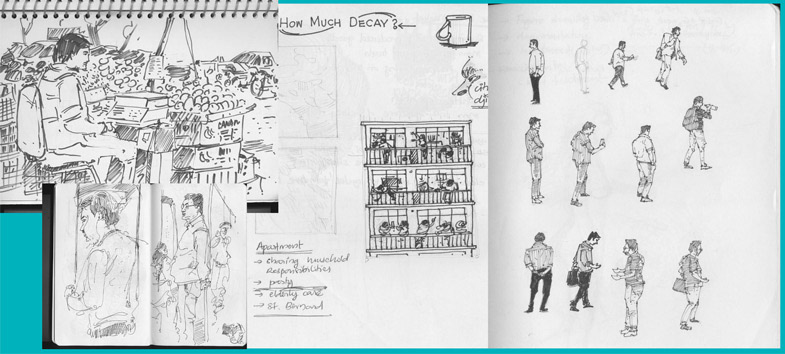 HOW MUCH DECAY?
Apartment
→ sharing household
responsibilities
→ party
→ elderly care
→ St. Bernard